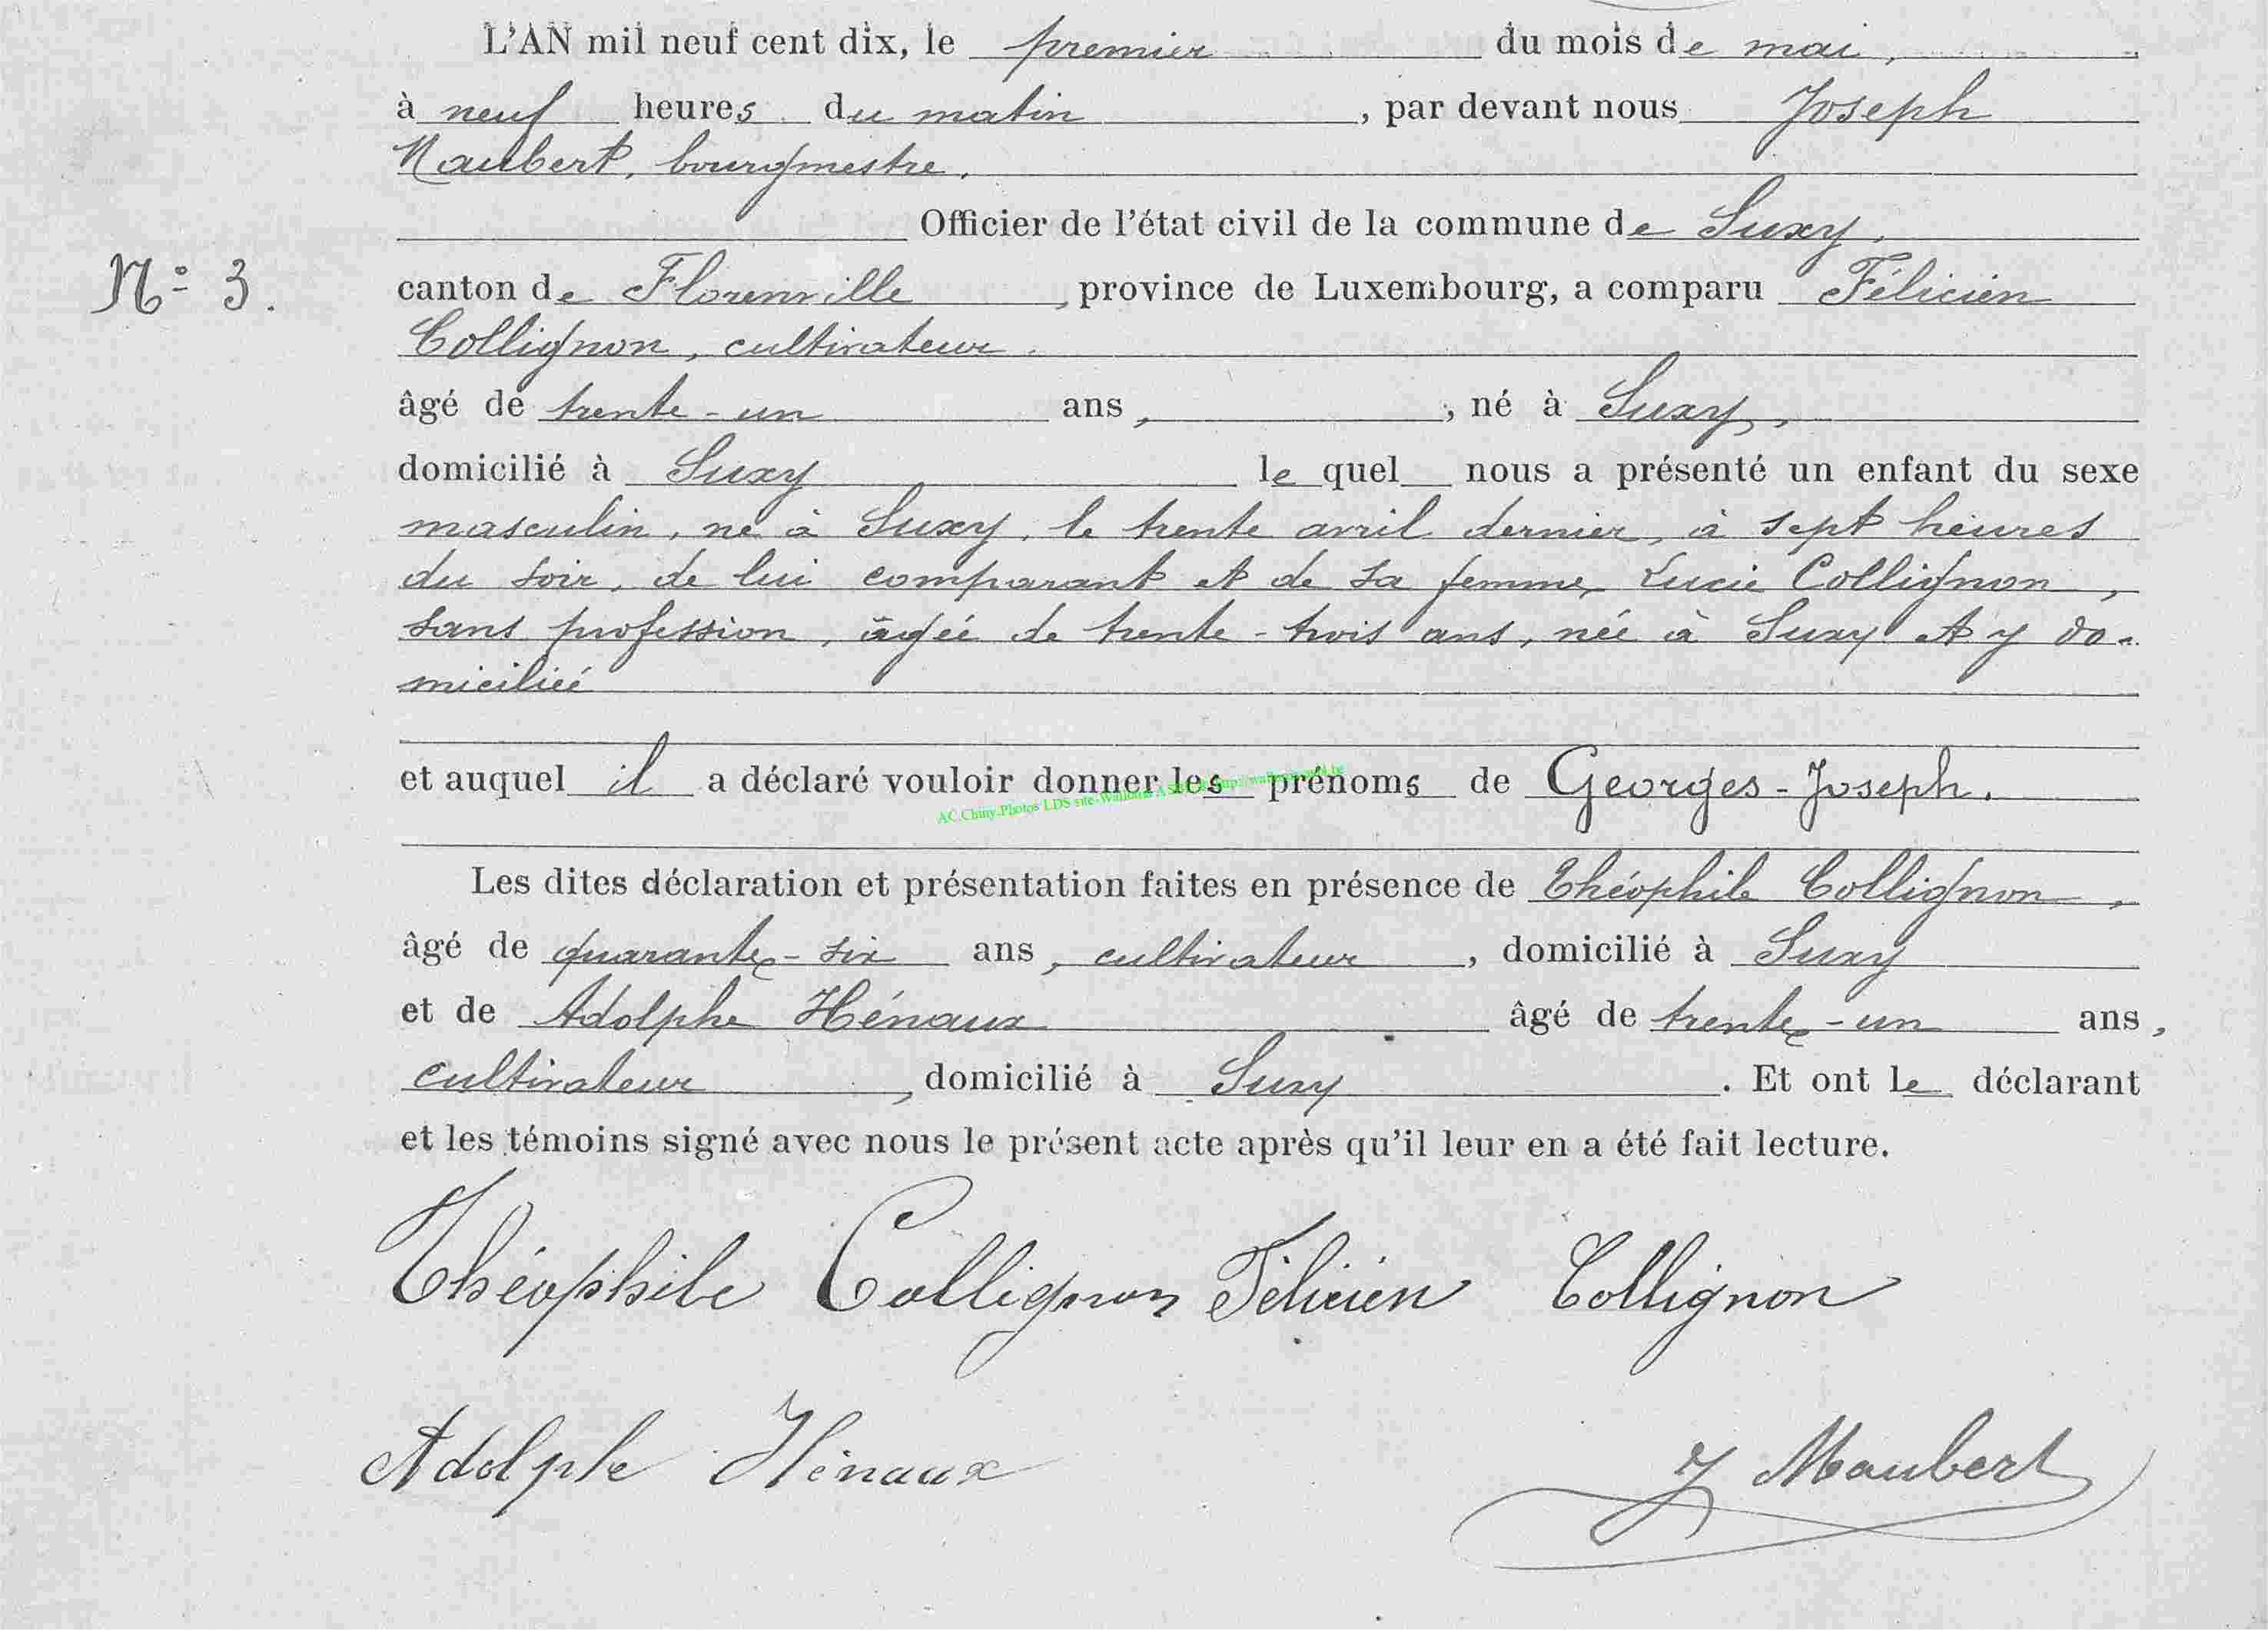 L'AN mil neuf cent dix, le premier du mois de mai,
à neuf heures du matin, par devant nous Joseph
Maubert, bourgmestre.
Officier de l'état civil de la commune de Suxy,
N° 3.
canton de Florenville, province de Luxembourg, a comparu Félicien
Collignon, cultivateur.
âgé de trente-un ans, , né à Suxy,
domicilié à Suxy le quel nous a présenté un enfant du sexe
masculin, né à Suxy, le trente avril dernier, à sept heures
du soir, de lui comparant et de sa femme, Lucie Collignon,
sans profession, âgée de trente-trois ans, née à Suxy et y do-
miciliée
et auquel il a déclaré vouloir donner les prénoms de Georges-Joseph.
AC.Chiny.Photos LDS site
Les dites déclaration et présentation faites en présence de Théophile Collignon,
âgé de quarante-six ans, cultivateur, domicilié à Suxy
et de Adolphe Hénaux âgé de trente-un ans,
cultivateur, domicilié à Suxy. Et ont le déclarant
et les témoins signé avec nous le présent acte après qu'il leur en a été fait lecture.
Théophile Collignon Félicien Collignon
Adolphe Hénaux J Maubert